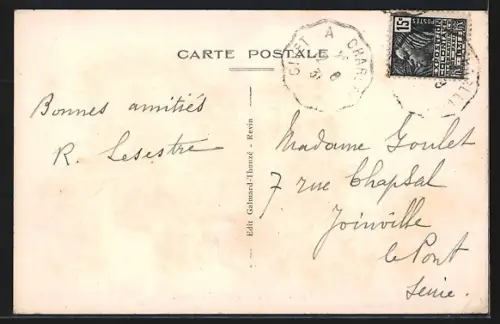 CARTE POSTALE
GIVET A CHARLE
15c
POSTES
Bonnes amitiés
R. Lesestre
Edit Galmard-Thouzé - Revin
Madame Goulet
7 rue Chapsal
Joinville
le Pont
Seine.